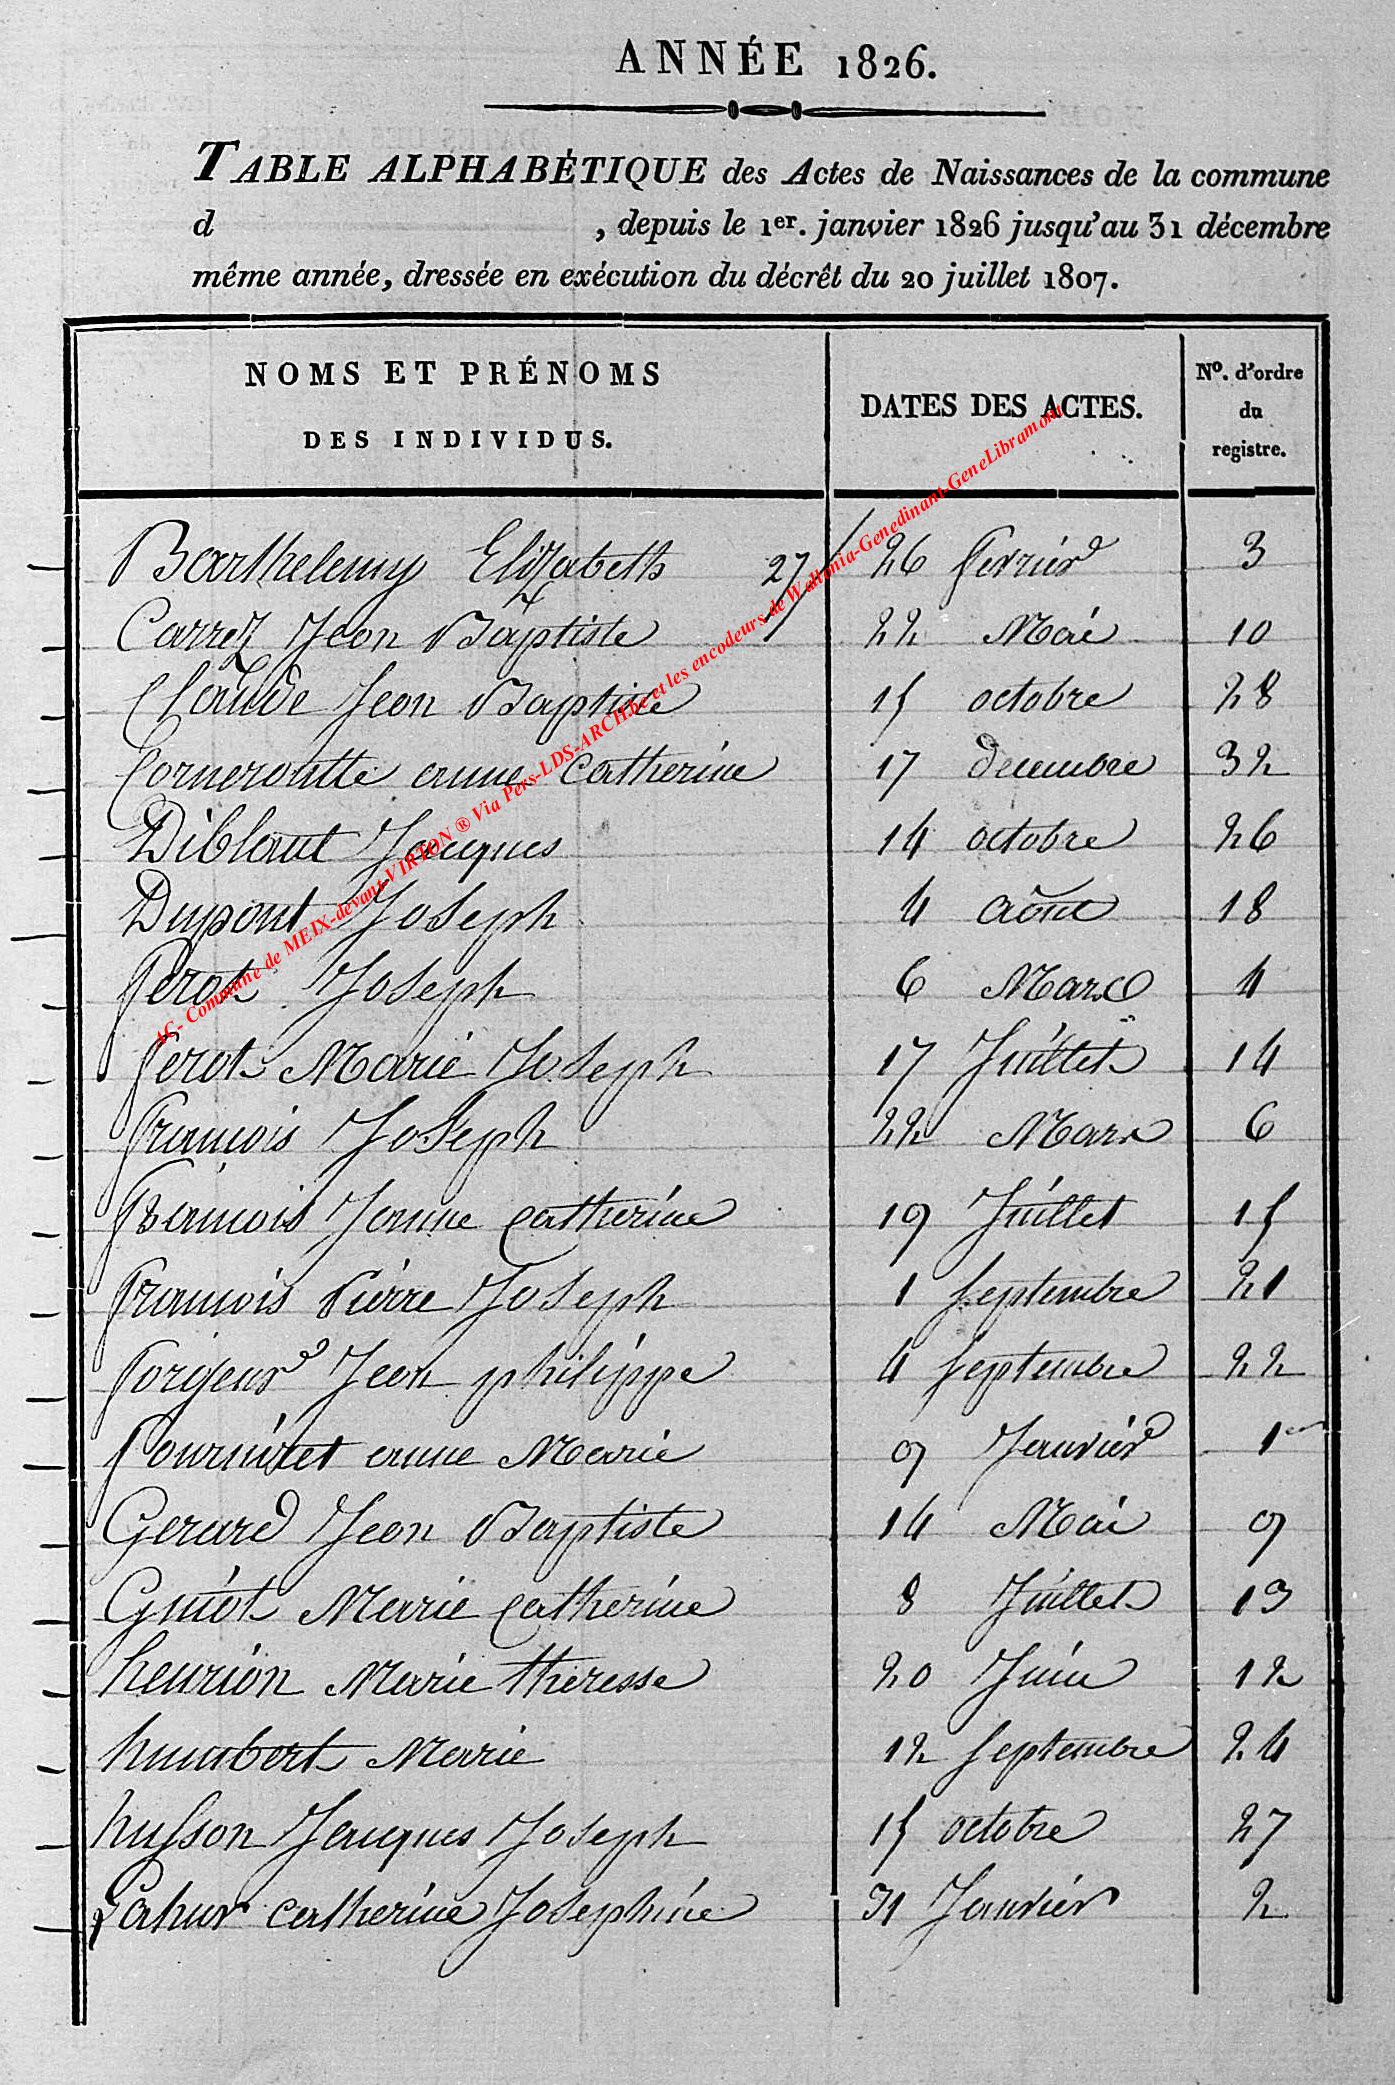 ANNÉE 1826.
TABLE ALPHABÉTIQUE des Actes de Naissances de la commune
d , depuis le 1er. janvier 1826 jusqu'au 31 décembre
même année, dressée en exécution du décrêt du 20 juillet 1807.
NOMS ET PRÉNOMS
DES INDIVIDUS.
DATES DES ACTES.
No. d'ordre
du
registre.
Barthelemy Elizabeth 27/ 26 fevrier 3
Carrez Jean Baptiste 22 Mai 10
Claude Jean Baptiste 15 octobre 28
Corneroutte anne Catherine 17 decembre 32
Diblaut Jacques 14 octobre 26
Dupont Joseph 4 août 18
ferot Joseph 6 Mars 4
ferot Marie Joseph 17 Juillet 14
françois Joseph 22 Mars 6
francois Jeanne Catherine 19 Juillet 15
francois Pierre Joseph 1 septembre 21
forgeur Jean philippe 4 septembre 22
fourniret anne Marie 9 Janvier 1er
Gerard Jean Baptiste 14 Mai 9
Guiot Marie Catherine 8 Juillet 13
henrion Marie theresse 20 Juin 12
humbert Marie 12 septembre 24
husson Jacques Joseph 15 octobre 27
Lahur Catherine Josephine 31 Janvier 2
AC- Commune de MEIX-devant-VIRTON ® Via Pers-LDS-ARCH.be et les encodeurs de Wallonia-Genedinant-GeneLibramont